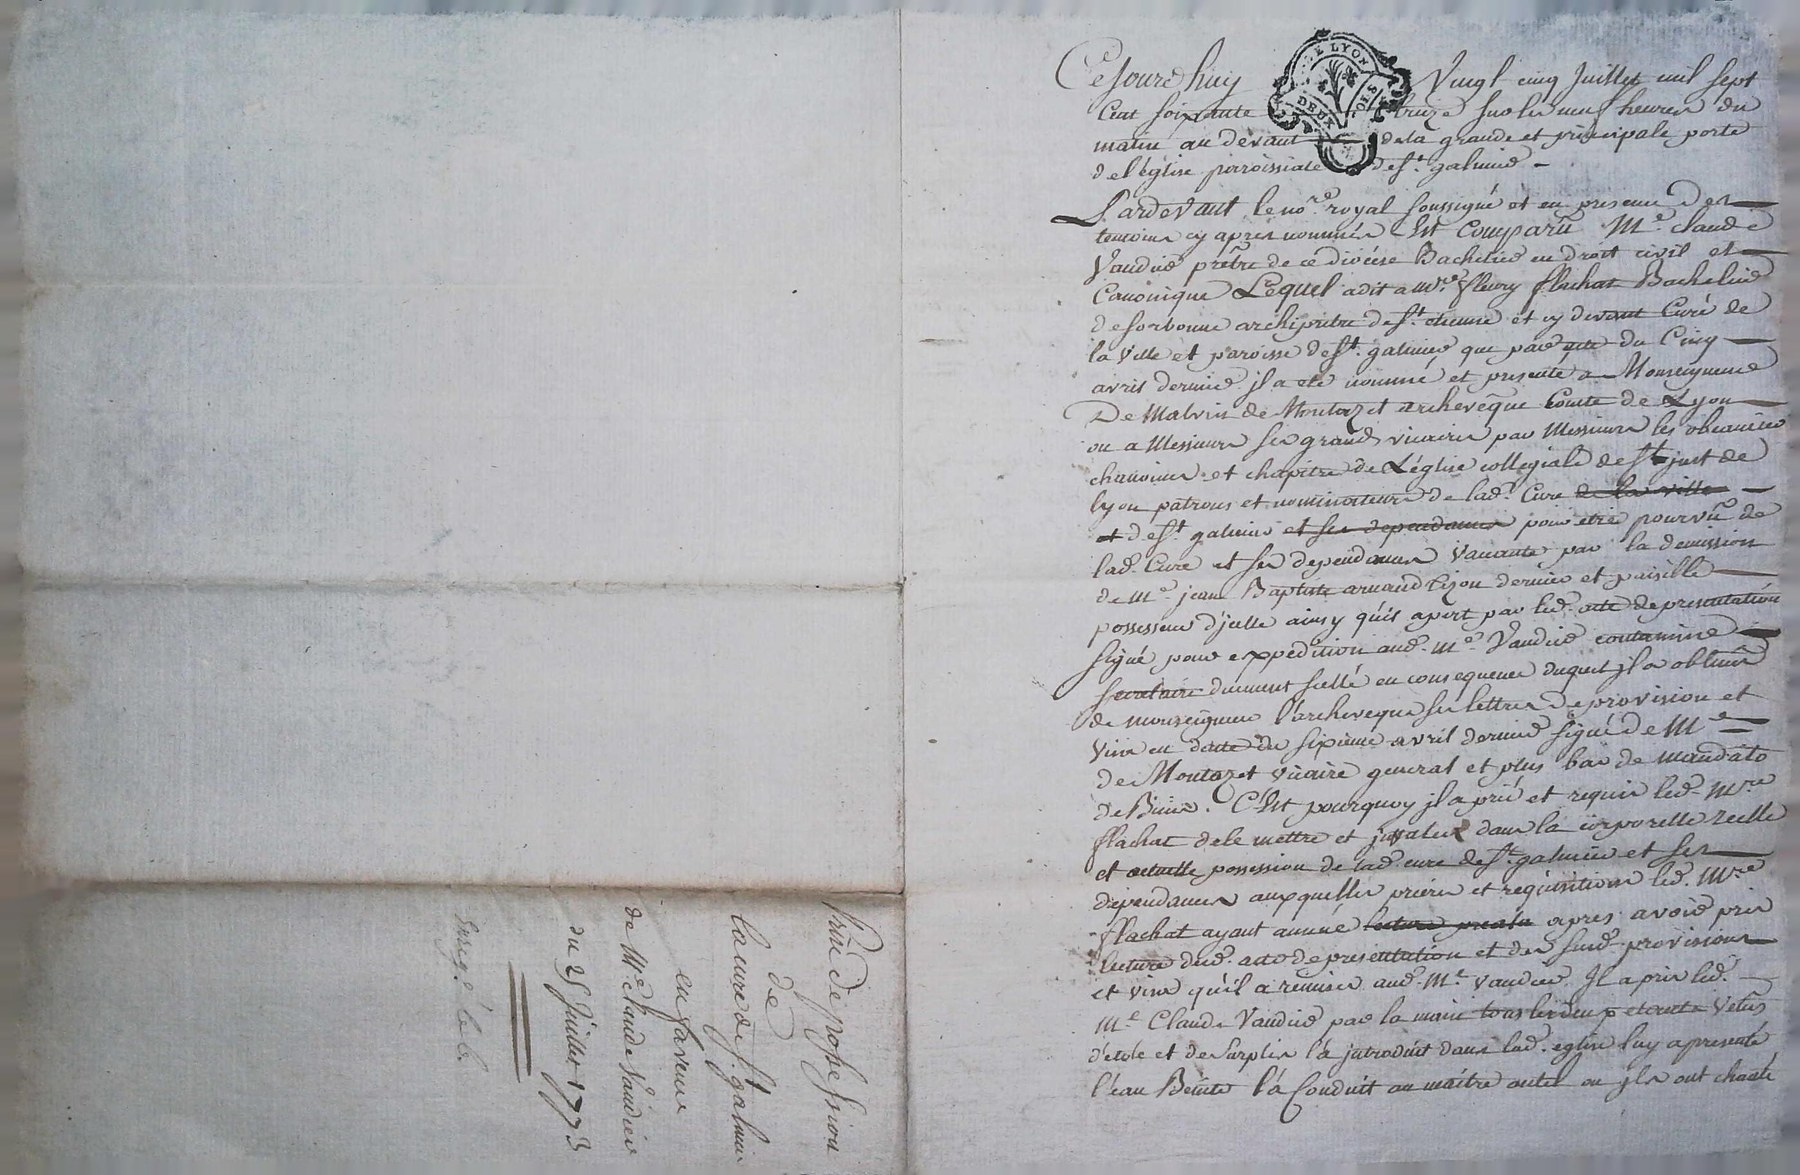 Prise de possession
de
la cure de St. galmier
en faveur
de Me. claude Vandier
du 25 Juillet 1773
DE LYON
DEUX SOLS
Cejourdhuy Vingt cinq Juillet mil sept
Cent soixante treize sur les neuf heures du
matin au devant de la grande et principale porte
de l'église parroissiale de St. galmier -
Pardevant le nore. royal soussigné et en presence des
temoins cy apres nommés Est Comparu Me. claude
Vandier prêtre de ce diocése Bachelier en droit civil et
Canonique Lequel a dit a Mre. fleury flachat Bachelier
de sorbonne archiprêtre de St. etienne et cy devant Curé de
la Ville et paroisse de St. galmier que par acte du Cinq
avril dernier il a eté nommé et presenté a Monseigneur
De Malvin de Montazet archevêque Comte de Lyon
ou a Messieurs ses grands vicaires par Messieurs les obeancier
chanoines et chapitre de L'église collegiale de St. just de
lyon patrons et nominateurs de lad. Cure de la ville
et de St. galmier et ses dependances pour etre pourvû de
lad. Cure et ses dependances Vacante par la demission
de Me. jean Baptiste arnaud dernier et paisible
possesseur d'jcelle ainsy qu'il apert par led. acte de presentation
signé pour expedition aud. Me. Vandier contamine
secretaire duement scellé en consequence duquel jl a obtenu
de monseigneur l'archeveque ses lettres de provision et
visa en datte du sixieme avril dernier signé De Me.
de Montazet vicaire general et plus bas de mandato
C'Est pourquoy jl a prié et requis led. Mre
flachat de le mettre et jnstaler dans la corporelle reelle
et actuelle possession de lad. cure de St. galmier et ses
dependances auxquelles prieres et requisitions led. Mre
flachat ayant anuué lecture apres avoir pris
lecture dud. acte de presentation et des susd. provisions
et visa qu'il a remises aud. Me. Vandier Il a pris led.
Me. Claude Vandier par la main tous les deux etants Vetus
d'etole et de surplis l'a jntroduit dans lad. eglise luy a presenté
l'eau Benite l'a Conduit au maitre autel ou jls ont chanté